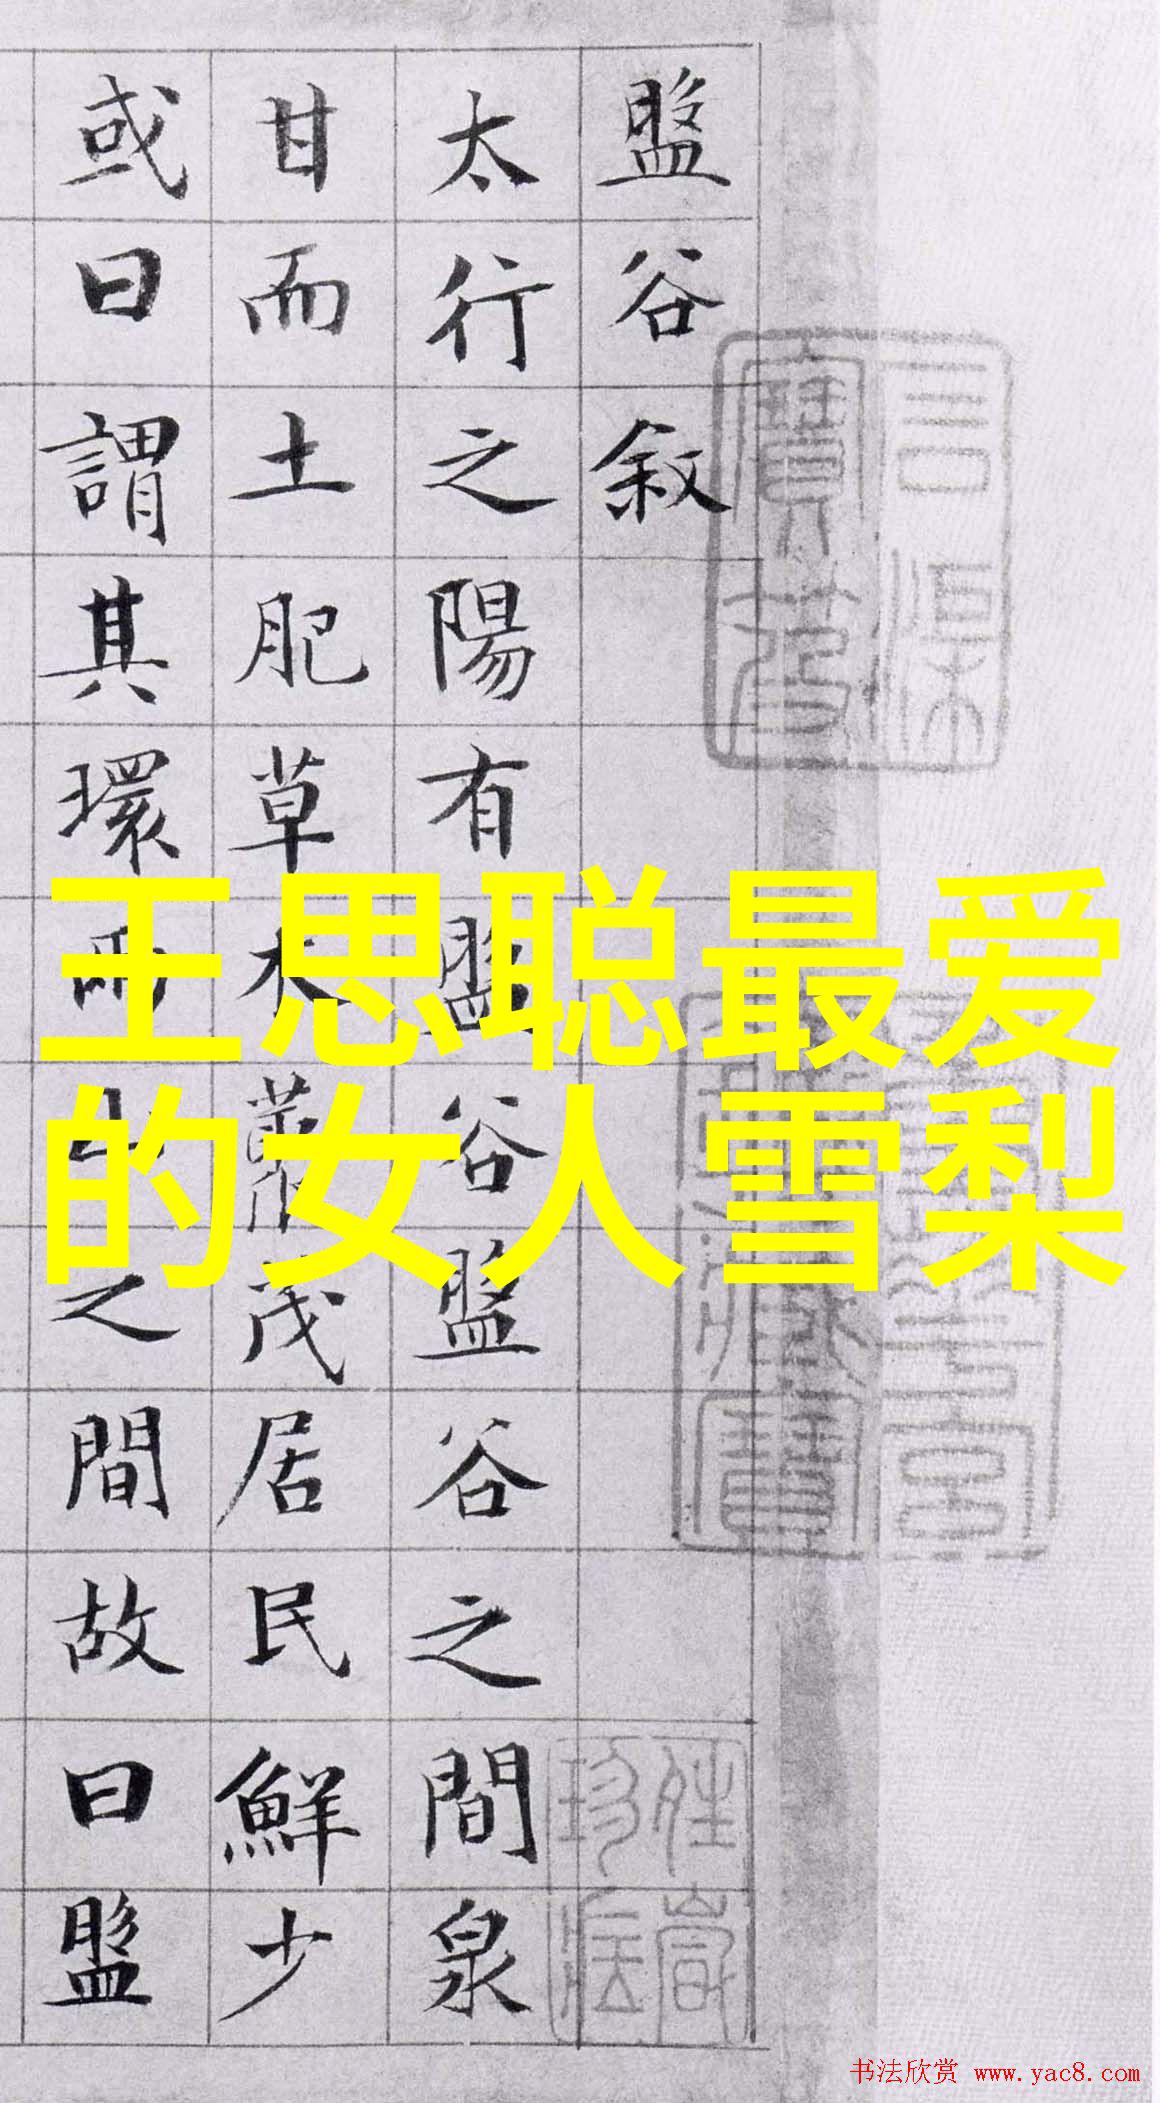 盤谷敘
太行之陽有盤谷盤谷之間泉
甘而土肥草木藂茂居民鮮少
或曰謂其環兩山之間故曰盤
王思聪最爱
的女人雪梨
书法欣赏 www.yac8.com